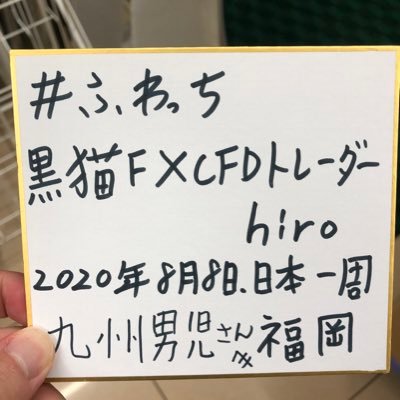 #ふわっち
黒猫FXCFDトレーダー
hiro
2020年8月8日.日本一周
九州男児さんへ福岡